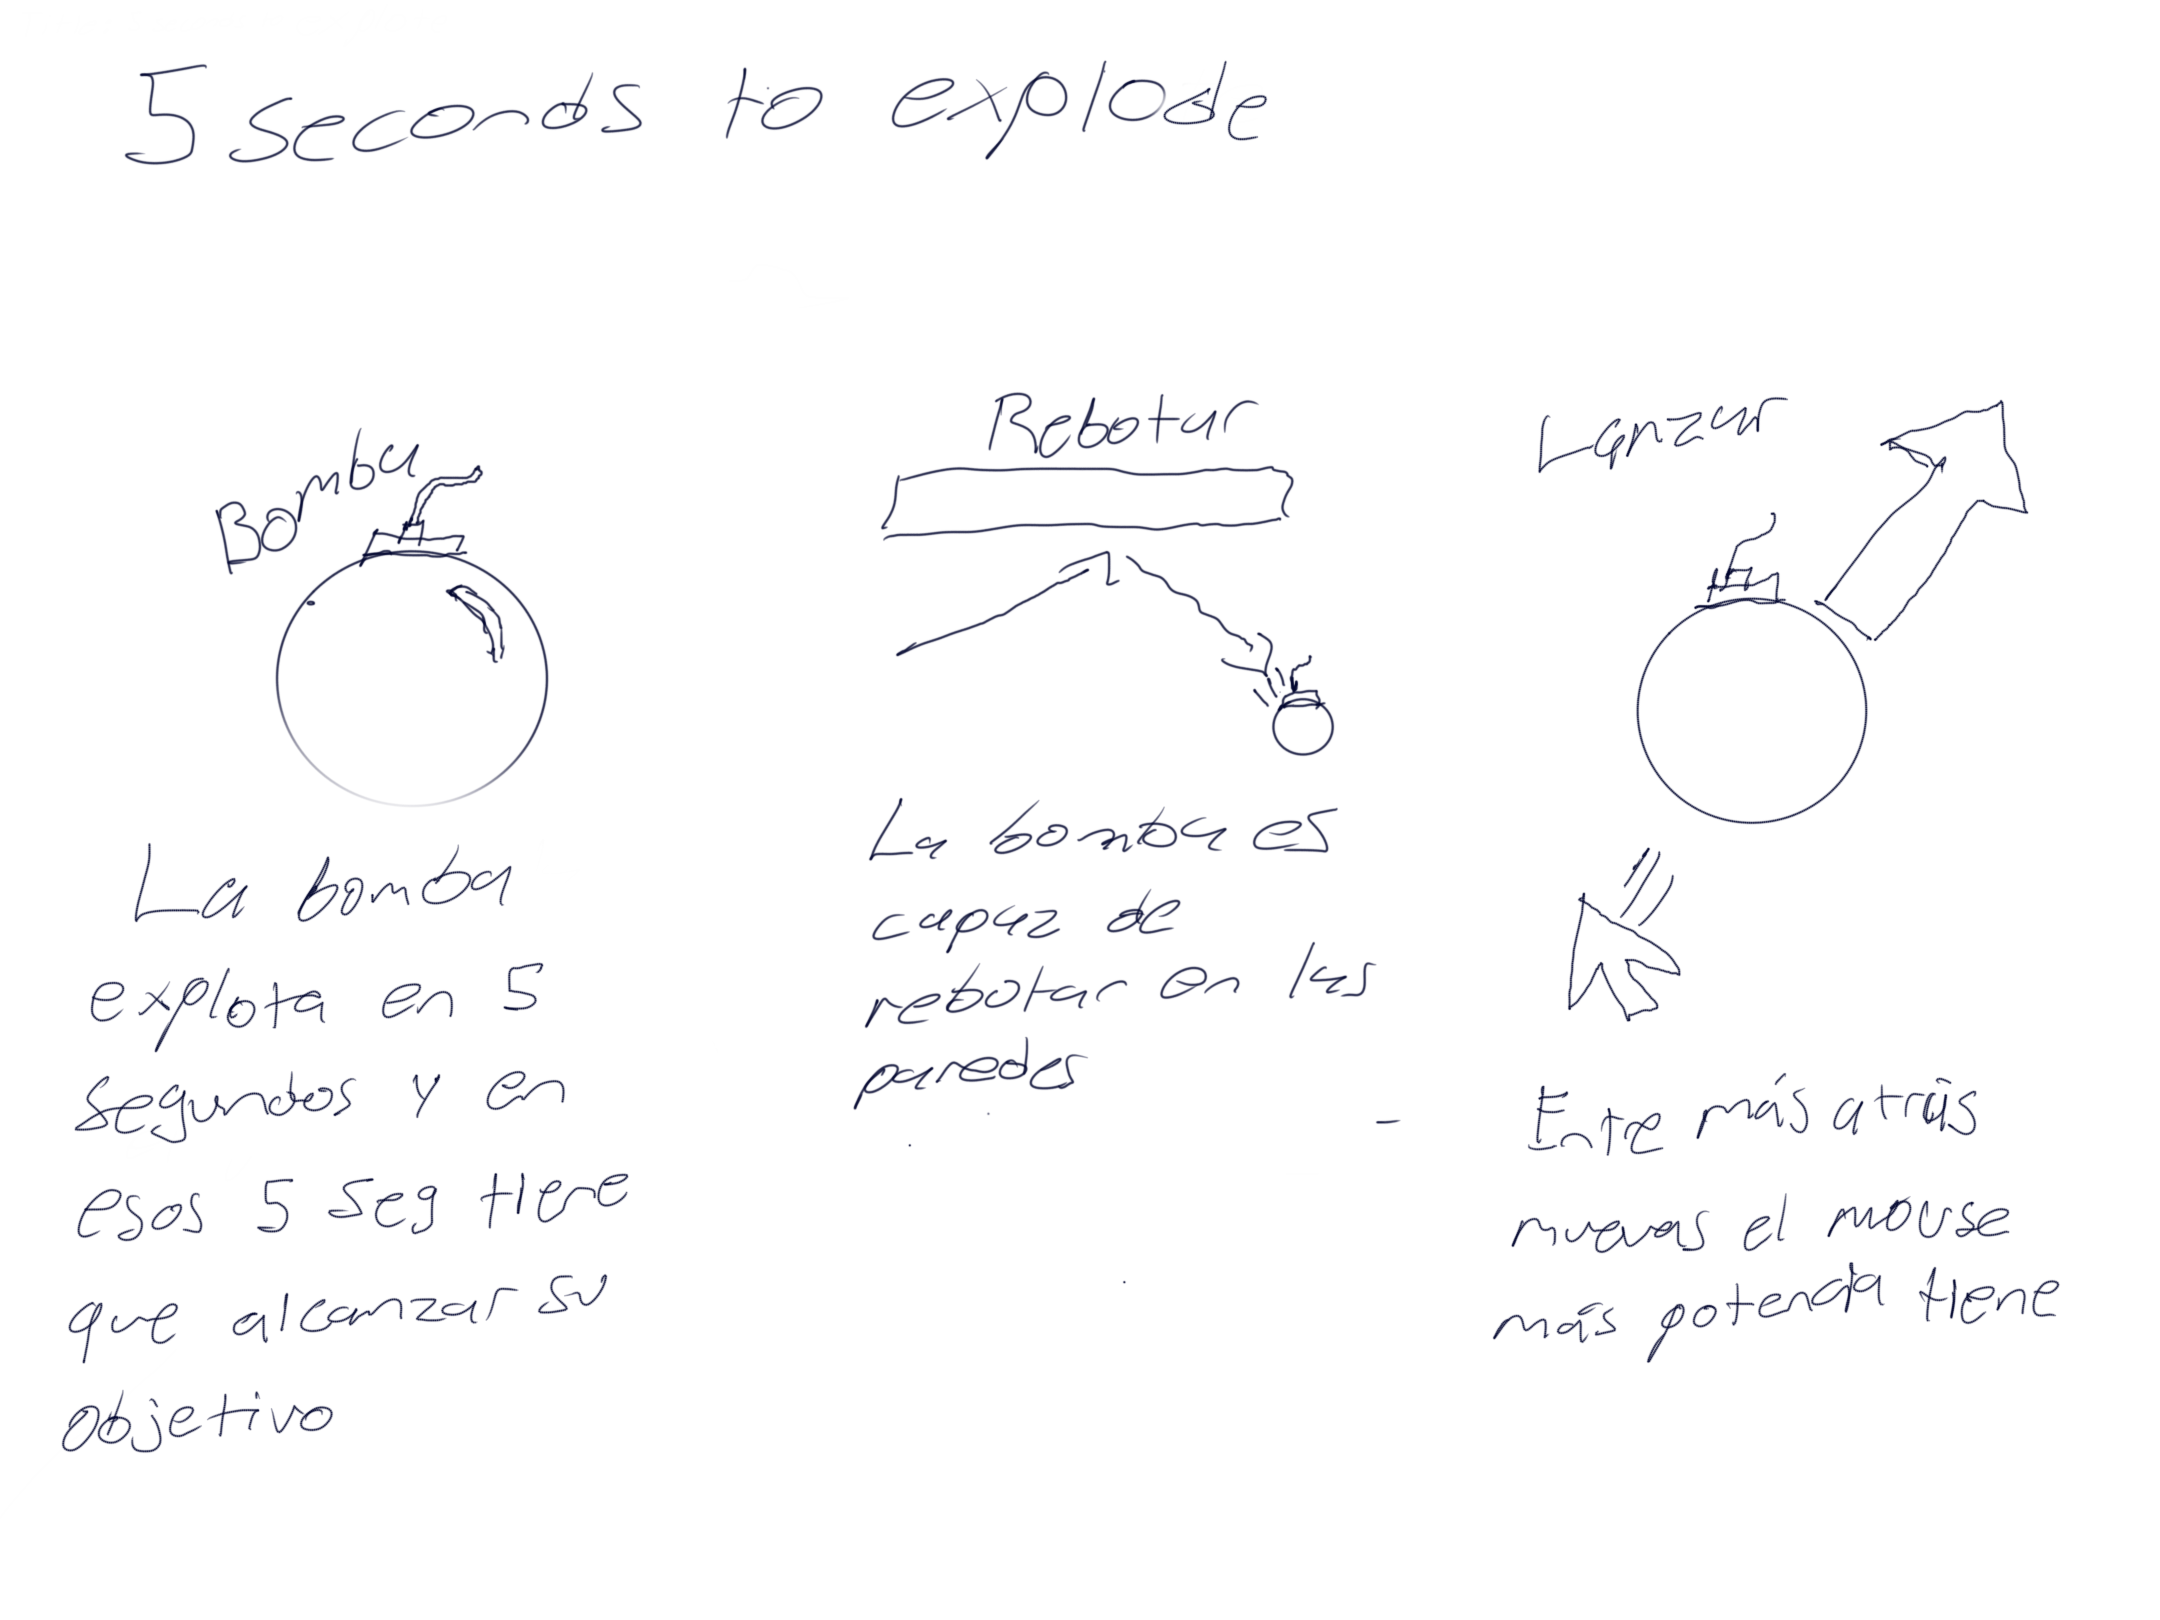 5 seconds to explode
Bomba
La bomba
explota en 5
segundos y en
esos 5 seg tiene
que alcanzar su
objetivo
Rebotar
La bomba es
capaz de
rebotar en las
paredes
Lanzar
Entre más atrás
muevas el mouse
más potencia tiene